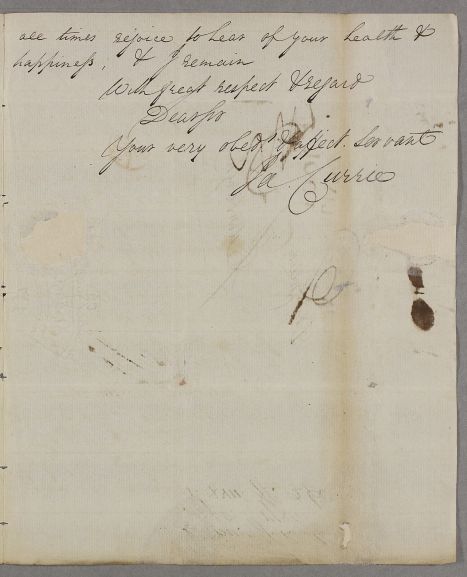 all times rejoice to hear of your health &
happiness, & I remain
With great respect & regard
Dear Sir
Your very obed.t & affect. Servant
Ja Currie